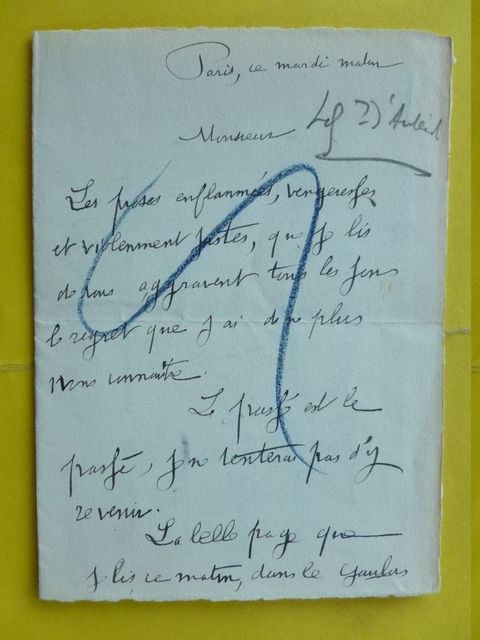 Paris, ce mardi matin
Monsieur
Les proses enflammées, vengeresses
et violemment justes, que je lis
de vous aggravent tous les jours
le regret que j'ai de ne plus
vous connaître.
Le passé est le
passé, je ne tenterai pas d'y
revenir.
La belle page que
je lis ce matin, dans le Gaulois